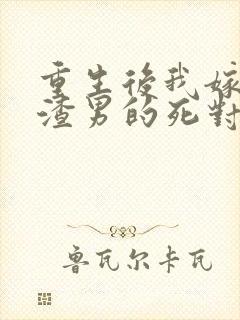 重生後我嫁
渣男的死對
鲁瓦尔卡瓦